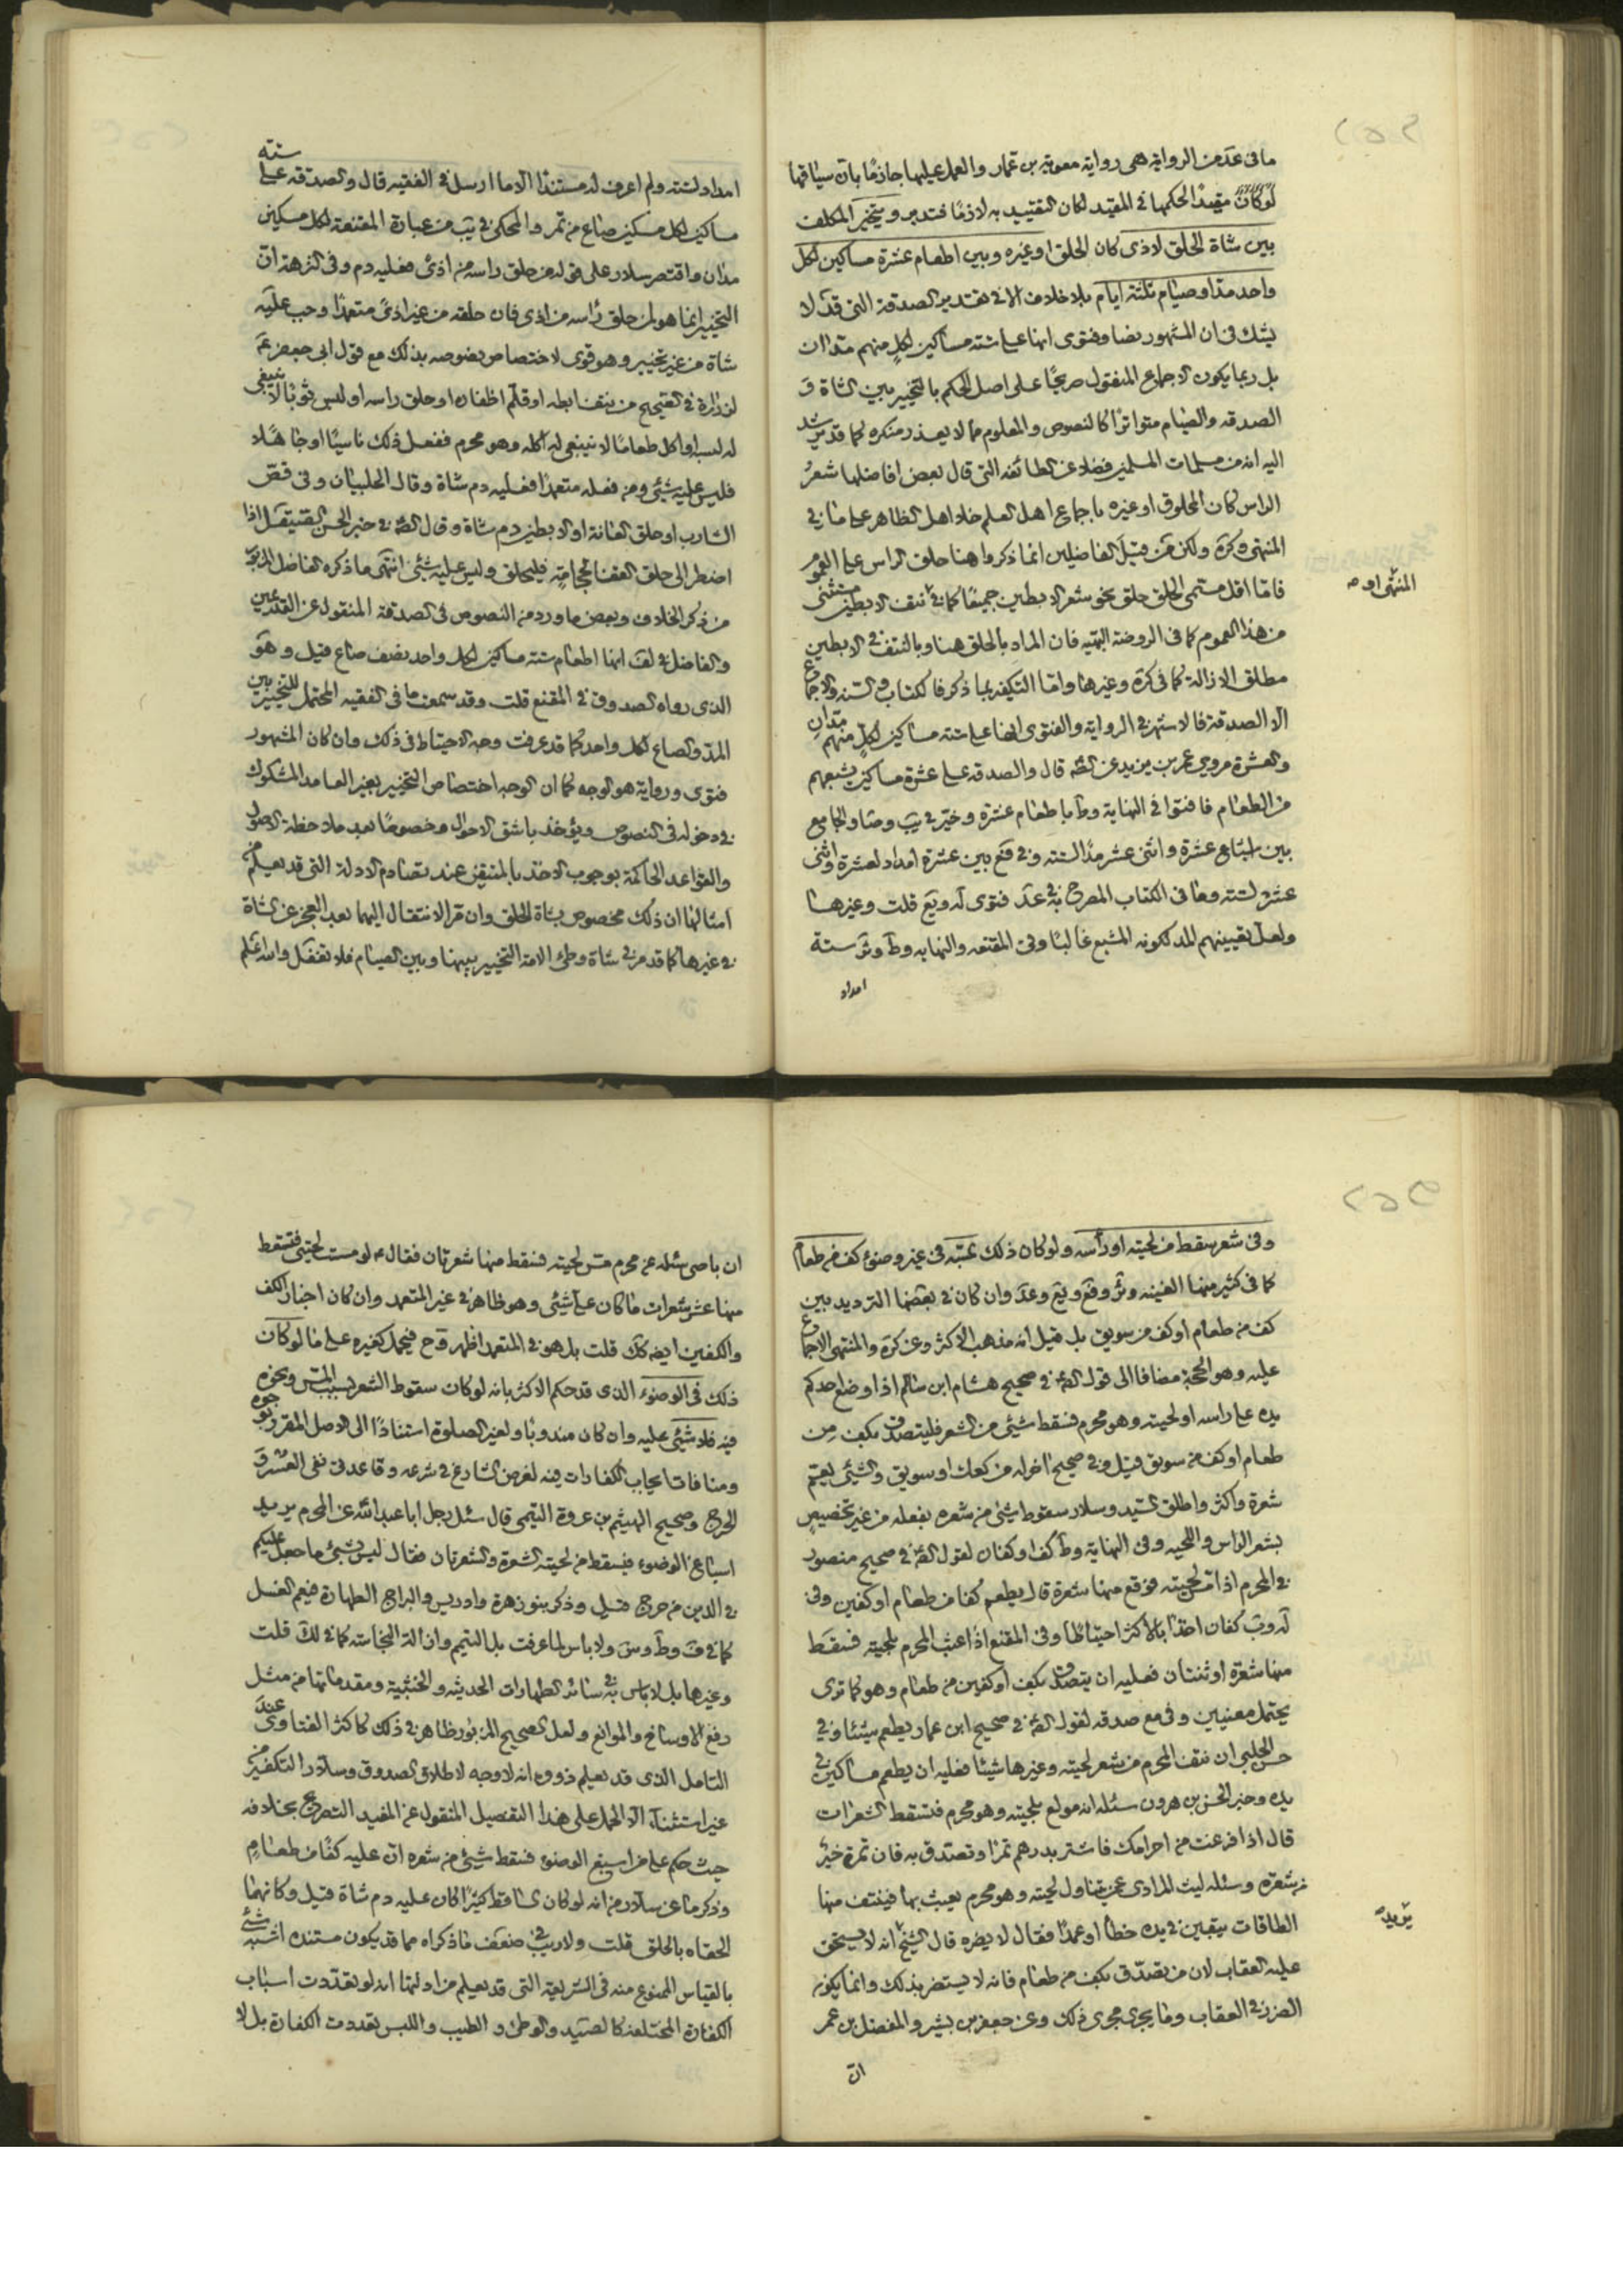 ما فى عد من الرواية هى رواية معوية بن عمار والعمل عليها جازمًا بان سياقها
لو كان مقيدًا لحكمها فى المقيد لكان التقييد به لازمًا فتدبر ويتخير المكلف
بين شاة الحلق لاذى كان الحلق او غيره وبين اطعام عشرة مساكين لكل
واحد مد او صيام ثلثة ايام بلا خلاف الا فى تقدير الصدقة التى قد لا
يشك فى ان المشهور نصا وفتوى انها على ستة مساكين لكل منهم مدان
بل ربما يكون الاجماع المنقول صريحًا على اصل الحكم بالتخيير بين الشاة و
الصدقه والصيام متواترًا كالنصوص والمعلوم مما لا يعذر منكره كما قد يرشد
اليه انه من مسلمات المسلمين فضلا عن الطائفه التى قال بعض افاضلها شعر
الراس كان المحلوق او غيره باجماع اهل العلم خلا اهل الظاهر على ما فى
المنتهى وكرة ولكن من قبل الفاضلين انما ذكروا هنا حلق الراس على العموم
المنتهى او
فاما اقل مسمى الحلق حلق نحو شعر الابطين جميعًا كما نتف الابطين مستثنى
من هذا العموم كما فى الروضة البهيه فان المراد بالحلق هنا وبالنتف فى الابطين
مطلق الازالة كما فى كرة وغيرها واما التكفير بما ذكر فالكتاب والسنه والاجماع
الا الصدقة فالاشهر فى الرواية والفتوى انها على ستة مساكين لكل منهم مدان
والعشرة مروى عمر بن يزيد عن الصه قال والصدقه على عشرة مساكين يشبعهم
من الطعام فافتوا فى النهاية وط باطعام عشرة وخير فى يب وصا والجامع
بين اشباع عشرة واثنى عشر مدًا لستة وفى قع بين عشرة امداد لعشرة واثنى
عشر لستة وما فى الكتاب المصرح به فى عد فتوى له ويع قلت وغيرها
ولعل تعيينهم للمد لكونه المشبع غالبًا وفى المقنعه والنهايه وط وئر ستة
امداد
امداد لستة ولم اعرف له مستندًا الا ما ارسل فى الفقيه قال والصدقه على ستة
مساكين لكل مسكين صاع من تمر والمحكى فى يب من عبارة المقنعة لكل مسكين
مدان واقتصر سلار على قوله من حلق راسه من اذى فعليه دم وفى النزهة ان
التخيير انما هو لمن حلق راسه من اذى فان حلقه من غير اذى متعمدًا وجب عليه
شاة من غير تخيير وهو قوى لاختصاص نصوصه بذلك مع قول ابى جعفر ع
لزرارة فى الصحيح من نتف ابطه او قلم اظفاره او حلق راسه او لبس ثوبًا لا ينبغى
له لبسه او اكل طعامًا لا ينبغى له اكله وهو محرم ففعل ذلك ناسيًا او جاهلا
فليس عليه شئ ومن فعله متعمدًا فعليه دم شاة وقال الحلبيان وفى قص
الشارب او حلق العانة او الابطين دم شاة وقال الصه فى خبر الحسن الصيقل اذا
اضطر الى حلق القفا للحجامة فليحلق وليس عليه شئ انتهى ما ذكره الفاضل المزبور
من ذكر الخلاف وبعض ما ورد من النصوص فى الصدقة المنقول عن القديمين
والفاضل فى لف انها اطعام ستة مساكين لكل واحد نصف صاع قيل وهو
الذى رواه الصدوق فى المقنع قلت وقد سمعت ما فى الفقيه المحتمل للتخيير بين
المد والصاع لكل واحد كما قد عرفت وجه الاحتياط فى ذلك وان كان المشهور
فتوى ورواية هو الوجه كما ان الوجه اختصاص التخيير بغير العامد المشكوك
فى دخوله فى النصوص ويؤخذ باشق الاحوال وخصوصًا بعد ملاحظة الاصول
والقواعد الحاكمة بوجوب الاخذ بالمتيقن عند تصادم الادلة التى قد يعلم من
امثالها ان ذلك مخصوص بشاة الحلق وان قر الانتقال اليهما بعد العجز عن الشاة
فى غيرها كما قد مر فى شاة وطئ الامة التخيير بينها وبين الصيام فلا تغفل والله اعلم
وفى شعر سقط من لحيته او رأسه ولو كان ذلك بمسه فى غير وضوء كف من طعام
كما فى كثير منها الغنيه وئر وقع ويع وعد وان كان فى بعضها الترديد بين
كف من طعام او كف من سويق بل قيل انه مذهب الاكثر وعن كرة والمنتهى الاجماع
عليه وهو الحجة مضافا الى قول الصه فى صحيح هشام ابن سالم اذا وضع احدكم
يده على راسه او لحيته وهو محرم فسقط شئ من الشعر فليتصدق بكف من
طعام او كف من سويق قيل وفى صحيح اخر له من كعك او سويق والشئ يعم
شعرة واكثر واطلق السيد وسلار سقوط شئ من شعره بفعله من غير تخصيص
بشعر الراس واللحيه وفى النهاية وط كف او كفان لقول الصه فى صحيح منصور
فى المحرم اذا مس لحيته فوقع منها شعرة قال يطعم كفا من طعام او كفين وفى
له ويب كفان اخذًا بالاكثر احتياطًا وفى المقنع اذا عبث المحرم بلحيته فسقط
منها شعرة او ثنتان فعليه ان يتصدق بكف او كفين من طعام وهو كما ترى
يحتمل معنيين وفى مع صدقه لقول الصه فى صحيح ابن عمار يطعم شيئا وفى
حسن الحلبى ان نتف المحرم من شعر لحيته وغيرها شيئا فعليه ان يطعم مسكين فى
يده وخبر الحسن بن هرون سئله انه مولع بلحيته وهو محرم فتسقط الشعرات
قال اذا فرغت من احرامك فاشتر بدرهم تمرًا وتصدق به فان تمرة خير
من شعرة وسئله ليث المرادى عمن يتناول لحيته وهو محرم يعبث بها فينتف منها
الطاقات يبقين فى يده خطأ او عمدًا فقال لا يضره قال الشيخ انه لا يستحق
يريد
عليه العقاب لان من تصدق بكف من طعام فانه لا يستضر بذلك وانما يكون
الضرر فى العقاب وما يجرى مجرى ذلك وعن جعفر بن بشير والمفضل بن عمر
ان
ان باصى سئله عن محرم مس لحيته فسقط منها شعرتان فقال ع لو مسست لحيتى فسقط
منها عشر شعرات ما كان على شئ وهو ظاهر فى غير المتعمد وان كان اخبار الكف
والكفين ايضه كك قلت بل هو فى المتعمد اظهر وح فيحمل كغيره على ما لو كان
ذلك فى الوضوء الذى قد حكم الاكثر بانه لو كان سقوط الشعر بسبب المس ونحوه
فيه فلا شئ عليه وان كان مندوبا ولغير الصلوة استنادًا الى الاصل المقرر بوجوه
ومنافات ايجاب الكفارات فيه لغرض الشارع فى شرعه وقاعدتى نفى العسر و
الحرج وصحيح الهيثم بن عروة التيمى قال سئل رجل ابا عبد الله عن المحرم يريد
اسباغ الوضوء فيسقط من لحيته الشعرة والشعرتان فقال ليس بشئ ما جعل عليكم
فى الدين من حرج قيل وذكر بنو زهرة وادريس والبراج الطهارة فيعم الغسل
كما فى ف وط وس ولا باس لما عرفت بل التيمم وازالة النجاسة كما فى لك قلت
وغيرها بل لا باس به فى سائر الطهارات الحدثيه والخبثية ومقدماتها من مثل
رفع الاوساخ والموانع ولعل الصحيح المزبور ظاهر فى ذلك كاكثر الفتاوى عند
التامل الذى قد يعلم ذووه انه لا وجه لاطلاق الصدوق وسلار التكفير من
غير استثناء الا الحمل على هذا التفصيل المنقول عن المفيد التصريح بخلافه
حيث حكم على من اسبغ الوضوء فسقط شئ من شعره ان عليه كفا من طعام
وذكر ما عن سلار من انه لو كان الساقط كثيرًا كان عليه دم شاة قيل وكانهما
الحقاه بالحلق قلت ولا ريب فى ضعف ما ذكراه مما قد يكون مستنده اشبه شئ
بالقياس الممنوع منه فى الشريعة التى قد يعلم من ادلتها انه لو تعددت اسباب
الكفارة المختلفه كالصيد والوطئ والطيب واللبس تعددت الكفارة بل لا